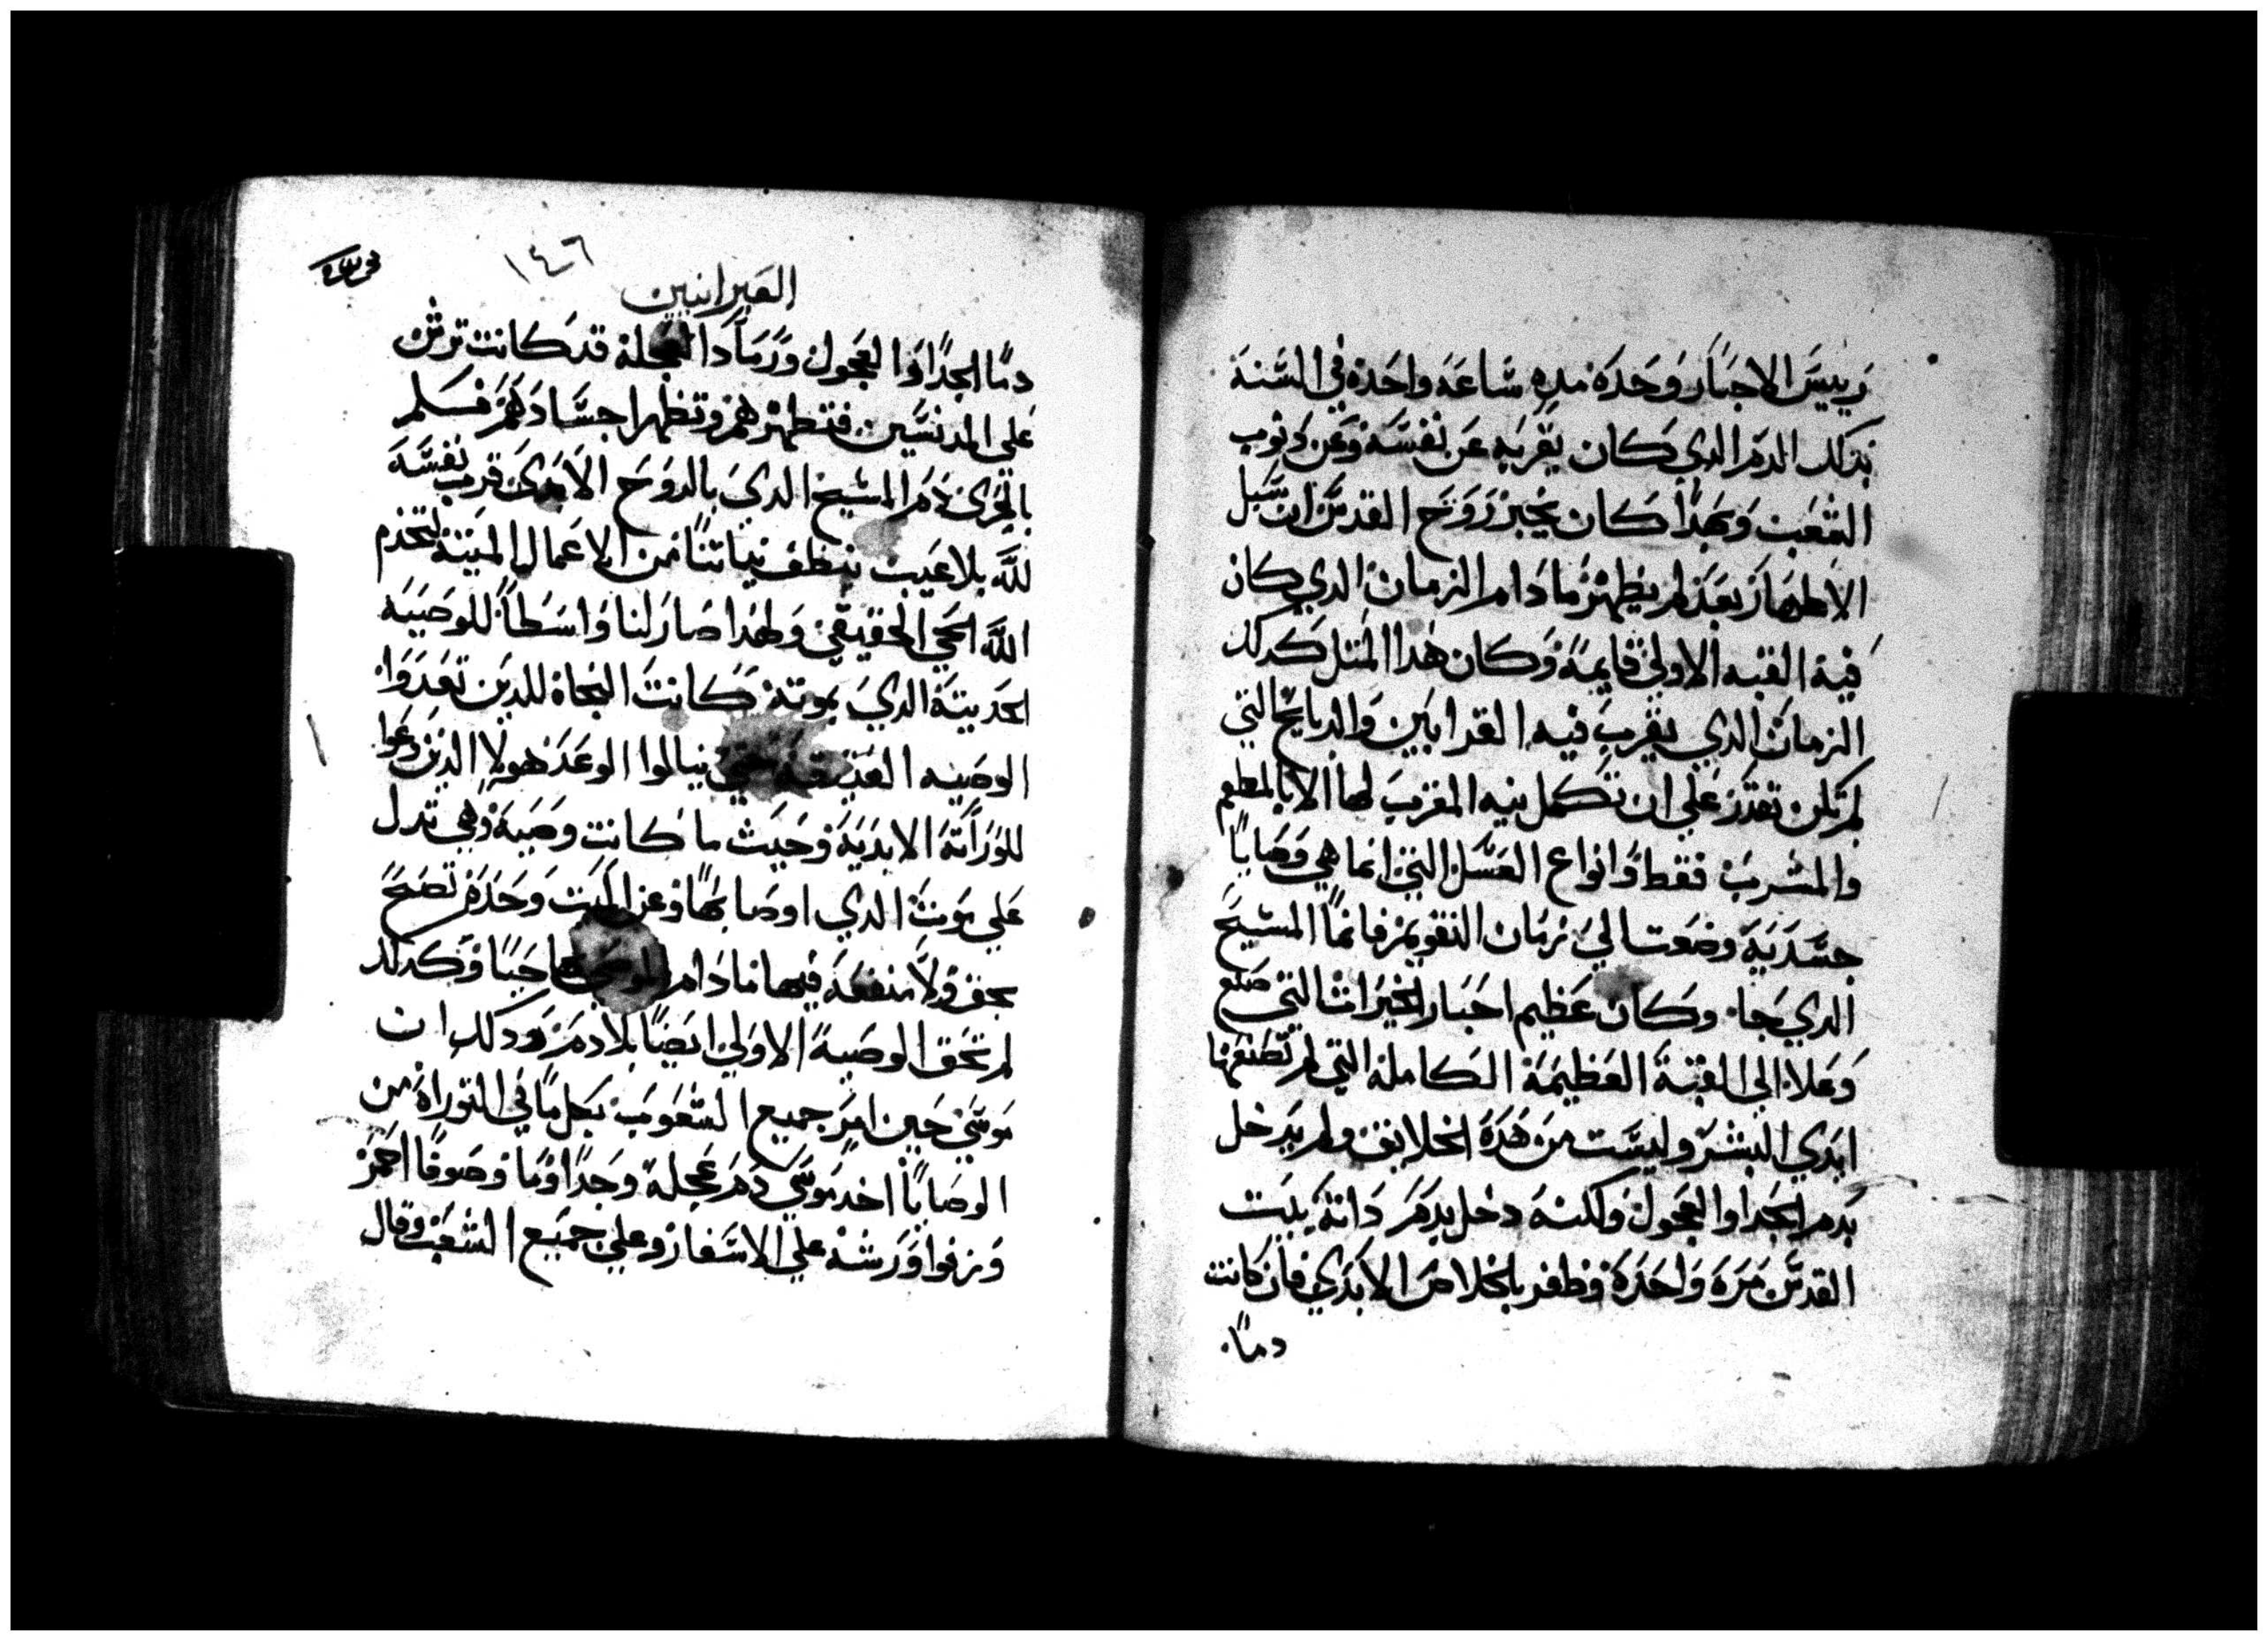 رييس الاحبار وحده مره ساعه واحده في السنة
بذلك الدم الدي كان يقربه عن نفسه وعن دنوب
الشعب وبهدا كان يخبر روح القدس ان سبل
الاطهار بعد لم يظهر ما دام الزمان الدي كان
فيه القبه الاولي قايمة وكان هدا المتل كدلك
الزمان الدي يقرب فيه القرابين والدبايح التي
لم تكن تقدر علي ان تكمل نيه المقرب لها الا بالمطعم
والمشرب فقط وانواع الغسل التي انما هي وصايا
جسدية وضعت الي زمان التقويم فاما المسيح
الدي جا وكان عظيم احبار الخيرات التي صنع
وعلا الي القبة العظيمة الكاملة التي لم تصنعها
ايدي البشر وليست من هده الخلايق ولم يدخل
بدم الجدا والعجول ولكنه دخل بدم داته بيت
القدس مرة واحدة وظفر بالخلاص الابدي فان كانت
دما
١٤٦
العبرانيين
دما الجدا والعجول ورماد العجلة قد كانت ترش
علي المدنسين فتطهرهم وتطهر اجسادهم فكم
بالحرى دم المسيح الدي بالروح الابدي قرب نفسه
لله بلا عيب ينظف نياتنا من الاعمال الميتة لنخدم
الله الحي الحقيقي ولهدا صار لنا واسطا للوصية
الحديتة الدي بموته كانت النجاة للدين تعدوا
الوصيه العتيقة حتي ينالوا الوعد هولا الدين دعوا
للوراتة الابدية وحيث ما كانت وصية وهي تدل
علي موت الدي اوصا بها وعن الميت وحده تصح
بحق ولا منفعة فيها ما دام الموصي بها حيا وكدلك
لم تحق الوصية الاولي ايضا بلا دم ودلك ان
موسي حين امر جميع الشعوب بكل ما في التوراة من
الوصايا اخد موسي دم عجلة وجدا وما وصوفا احمر
وزوفا ورشه علي الاسفار وعلي جميع الشعب وقال